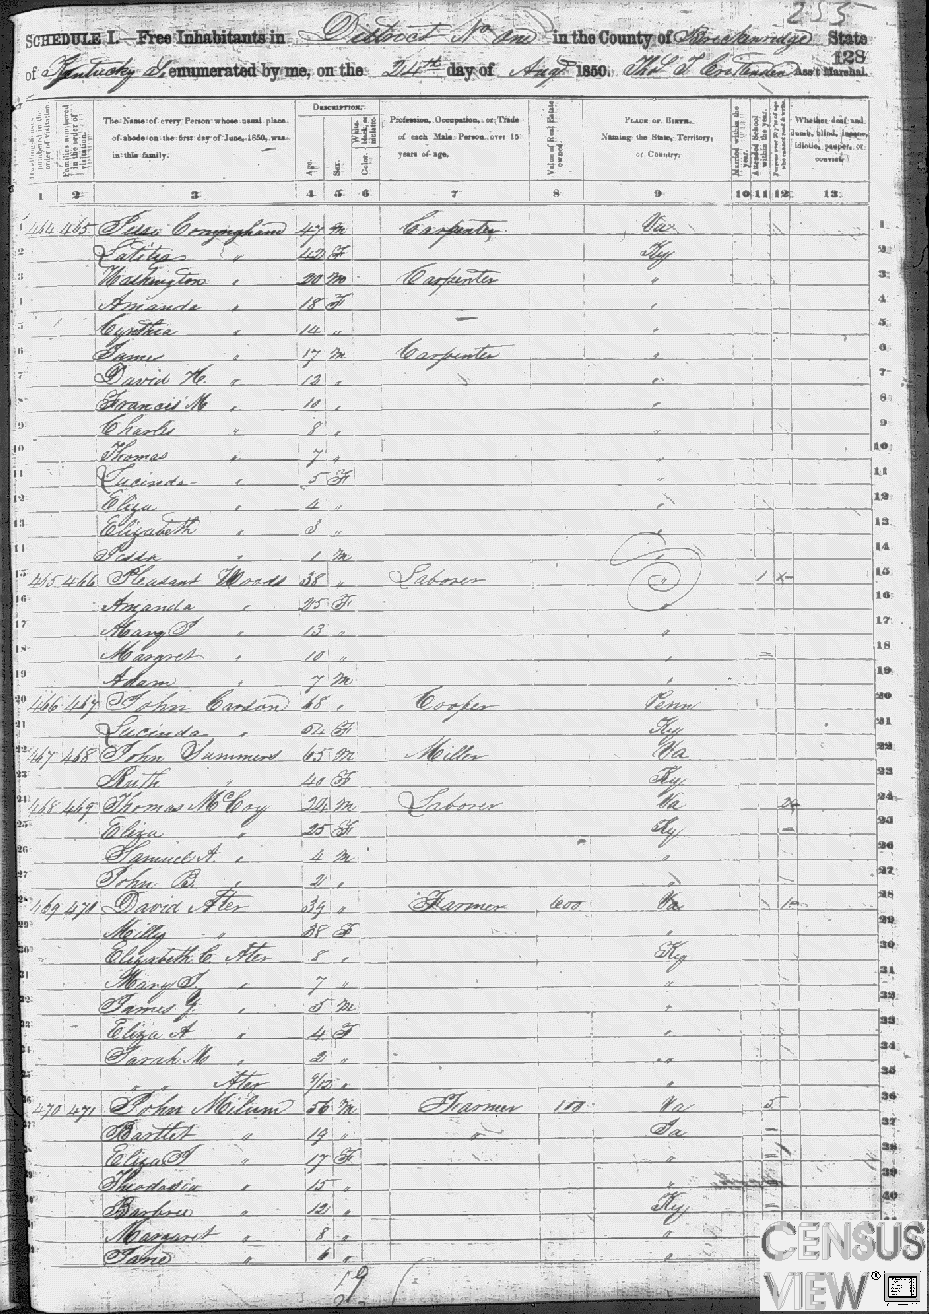 255
SCHEDULE I.—Free Inhabitants in District No One in the County of Breckenridge State
128
of Kentucky enumerated by me, on the 24th day of Augt 1850. Thos. T. Crittenden Ass't Marshal.
The Name of every Person whose usual place of abode on the first day of June, 1850, was in this family.
DESCRIPTION.
Age.
Sex.
White, Color, black, or mulatto.
Profession, Occupation, or Trade of each Male Person over 15 years of age.
Value of Real Estate owned.
PLACE OF BIRTH. Naming the State, Territory, or Country.
Married within the year.
Attended School within the year.
Whether deaf and dumb, blind, insane, idiotic, pauper, or convict.
1 2 3 4 5 6 7 8 9 10 11 12 13
1 464 465 Jesse Cunningham 47 M Carpenter Va 1
2 Latitia " 42 F Ky 2
3 Washington " 20 M Carpenter " 3
4 Amanda " 18 F " 4
5 Cynthia " 14 " — " 5
6 James " 17 M Carpenter " 6
7 David H. " 12 " " 7
8 Francis M " 10 " " 8
9 Charles " 8 " " 9
10 Thomas " 7 " " 10
11 Lucinda " 5 F " 11
12 Eliza " 4 " " 12
13 Elizabeth " 3 " " 13
14 Jesse " 1 M " 14
15 465 466 Pleasant Woods 38 " Laborer " 1 x 15
16 Amanda " 25 F " 16
17 Mary J " 13 " " 17
18 Margret " 10 " " 18
19 Adam " 7 M " 19
20 466 467 John Carson 68 " Cooper Penn 20
21 Lucinda " F Ky 21
22 467 468 John Summers 65 M Miller Va 22
23 Ruth " 40 F Ky 23
24 468 469 Thomas McCoy 24 M Laborer Va 24
25 Eliza " 25 F Ky 25
26 Samuel A. " 4 M " 26
27 John B. " 2 " " 27
28 469 470 David Ater 39 " Farmer 600 Va 28
29 Milly " 38 F " 29
30 Elizabeth C Ater 8 " Ky 30
31 Mary J. " 7 " " 31
32 James G. " 5 M " 32
33 Eliza A " 4 F " 33
34 Sarah M " 2 " " " 34
35 " " Ater 9/12 " " 35
36 470 471 John Milum 56 M Farmer 100 Va 5 36
37 Bartlet " 19 " " Ia 37
38 Eliza J " 17 F " 38
39 Theodosia " 15 " " 39
40 Barbree " 12 " Ky 40
Margaret " 8 " "
Jane " 6 " "
CENSUS
VIEW®